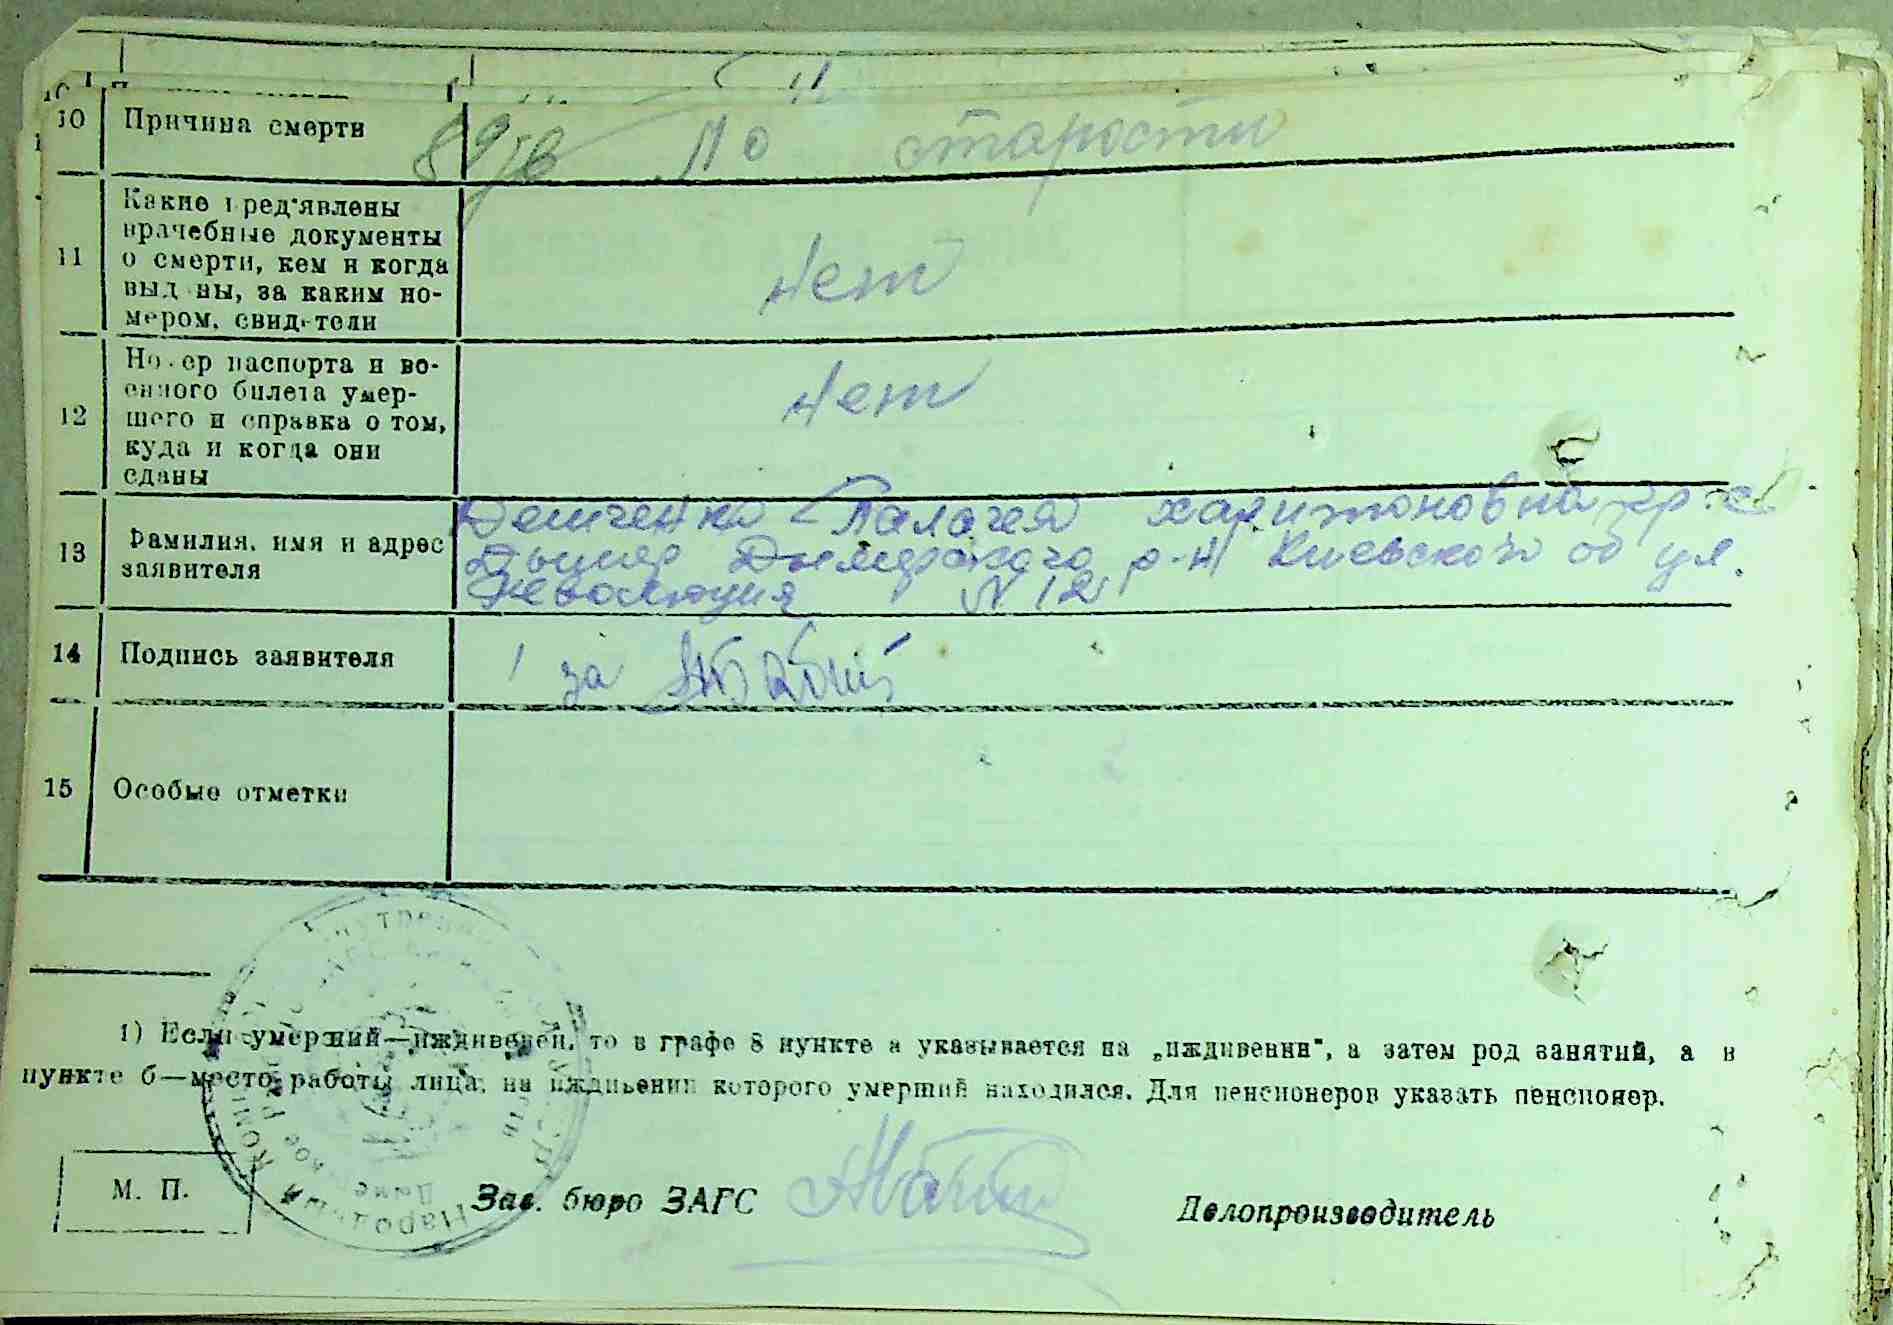 10 Причина смерти
По старости
11 Какие пред'явлены
врачебные документы
о смерти, кем и когда
выданы, за каким но-
мером, свидетели
нет
12 Номер паспорта и во-
енного билета умер-
шего и справка о том,
куда и когда они
сданы
нет
13 Фамилия, имя и адрес
заявителя
Демченко Палагея харитоновна гр. с
Дымер Дымерского р-н Киевской об ул.
Революция N 12
14 Подпись заявителя
за
15 Особые отметки
1) Если умерший—иждивенец, то в графе 8 пункте а указывается на „иждивении", а затем род занятий, а в
пункте б—место работы лица, на иждивении которого умерший находился. Для пенсионеров указать пенсионер.
М. П.
Зав. бюро ЗАГС
Делопроизводитель